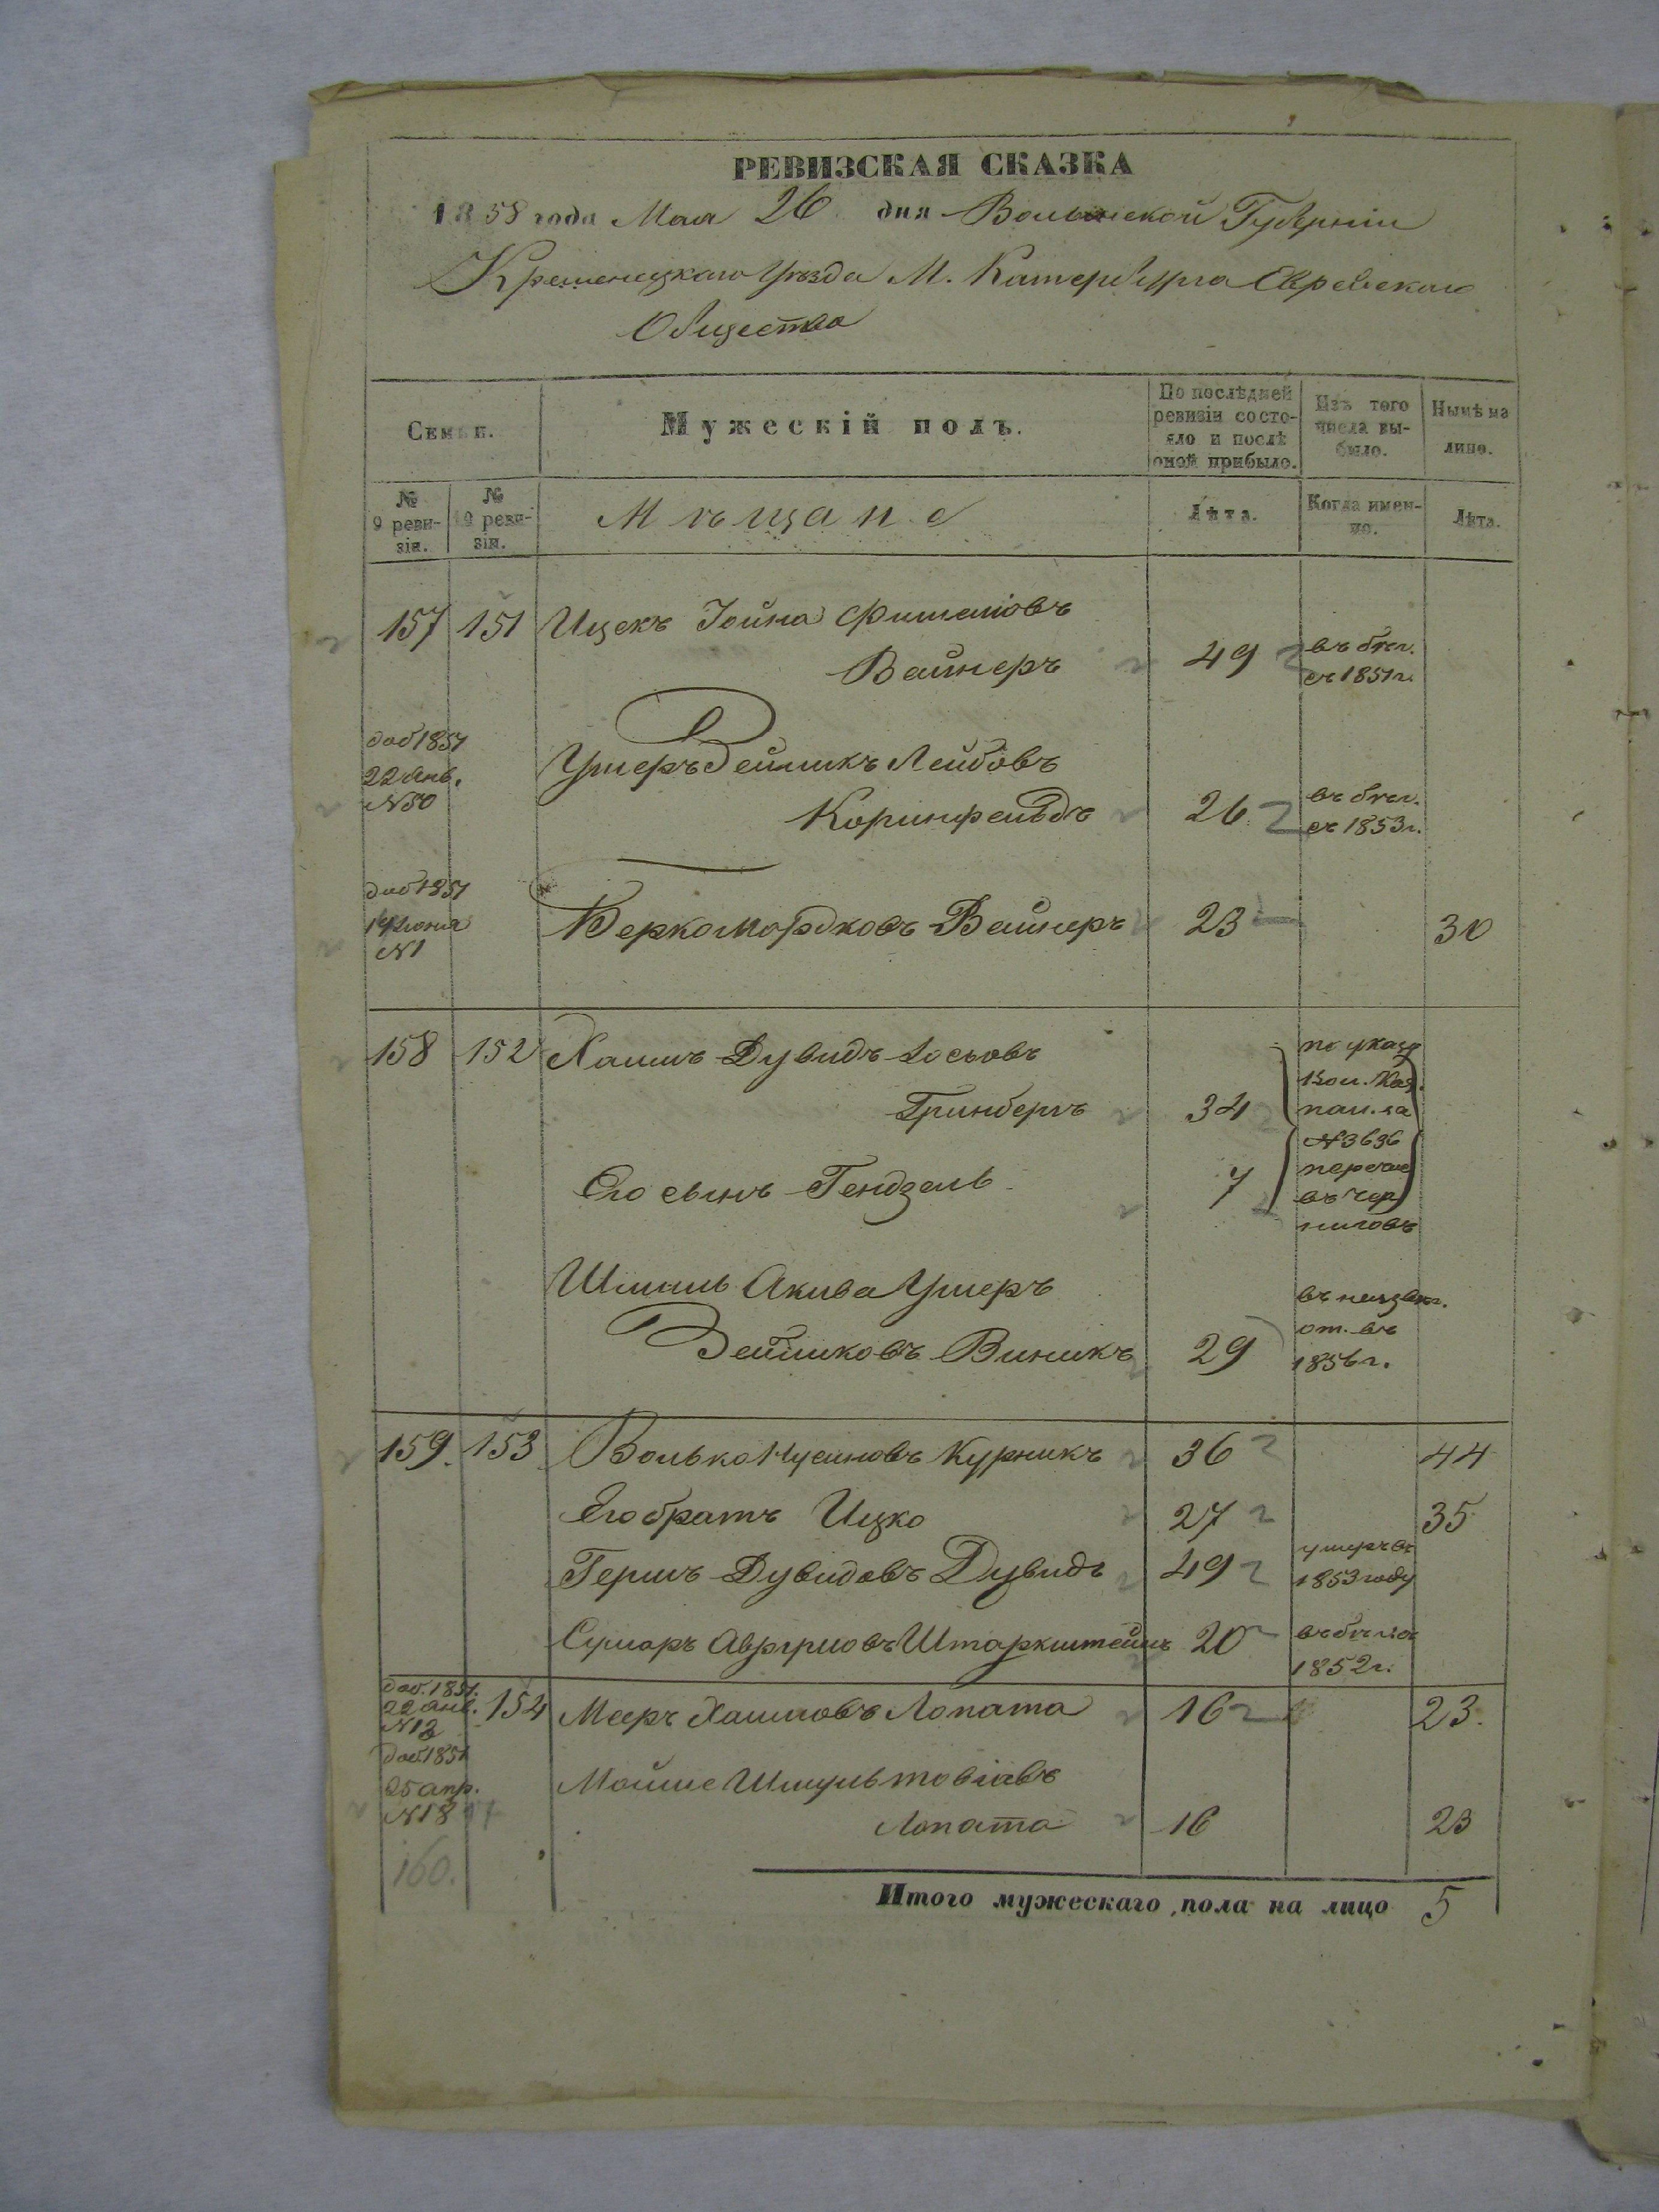 РЕВИЗСКАЯ СКАЗКА
1858 года Мая 26 дня Волынской Губерніи
Кременецкаго Уѣзда М. Катербурга Еврейскаго
Общества
Семьи.
Мужескій полъ.
По послѣдней ревизіи состояло и послѣ оной прибыло.
Изъ того числа выбыло.
Нынѣ на лицо.
№ 9 ревизіи.
№ 10 ревизіи.
Мѣщане
Лѣта.
Когда именно.
Лѣта.
157 151 Ицекъ Іойна Фишелiовъ
Вайнеръ 49 въ бѣг. съ 1851 г.
доб 1851 22 Янв. N 50
Ушеръ Зейликъ Лейбовъ
Коринфельдъ 26 въ бѣг. съ 1853 г.
доб 1851 14 Июня N 1
Берко Мордковъ Вайнеръ 23 30
158 152 Хаимъ Дувидъ Iосьовъ
Гринбергъ 34
по указу Вол. Каз. пал. за N 3636 перечис въ Черниговъ
Его сынъ Гендзель 7
Шмиль Акива Ушеръ
Зейликовъ Виникъ 29
от. въ 1856 г.
159. 153 Волько Нусиновъ Курникъ 36 44
Его братъ Ицко 27 35
Гершъ Дувидовъ Дувидъ 49 умеръ въ 1853 году
Сумеръ Штаркштейнъ 20 въ бѣгахъ 1852 г.
доб. 1851. 22 Янв. N 12
154 Мееръ Хаимовъ Лопата 16 23.
доб. 1851 25 апр. N 18
Мойше Шмуль товiавъ
Лопата 16 23
160.
Итого мужескаго пола на лицо 5